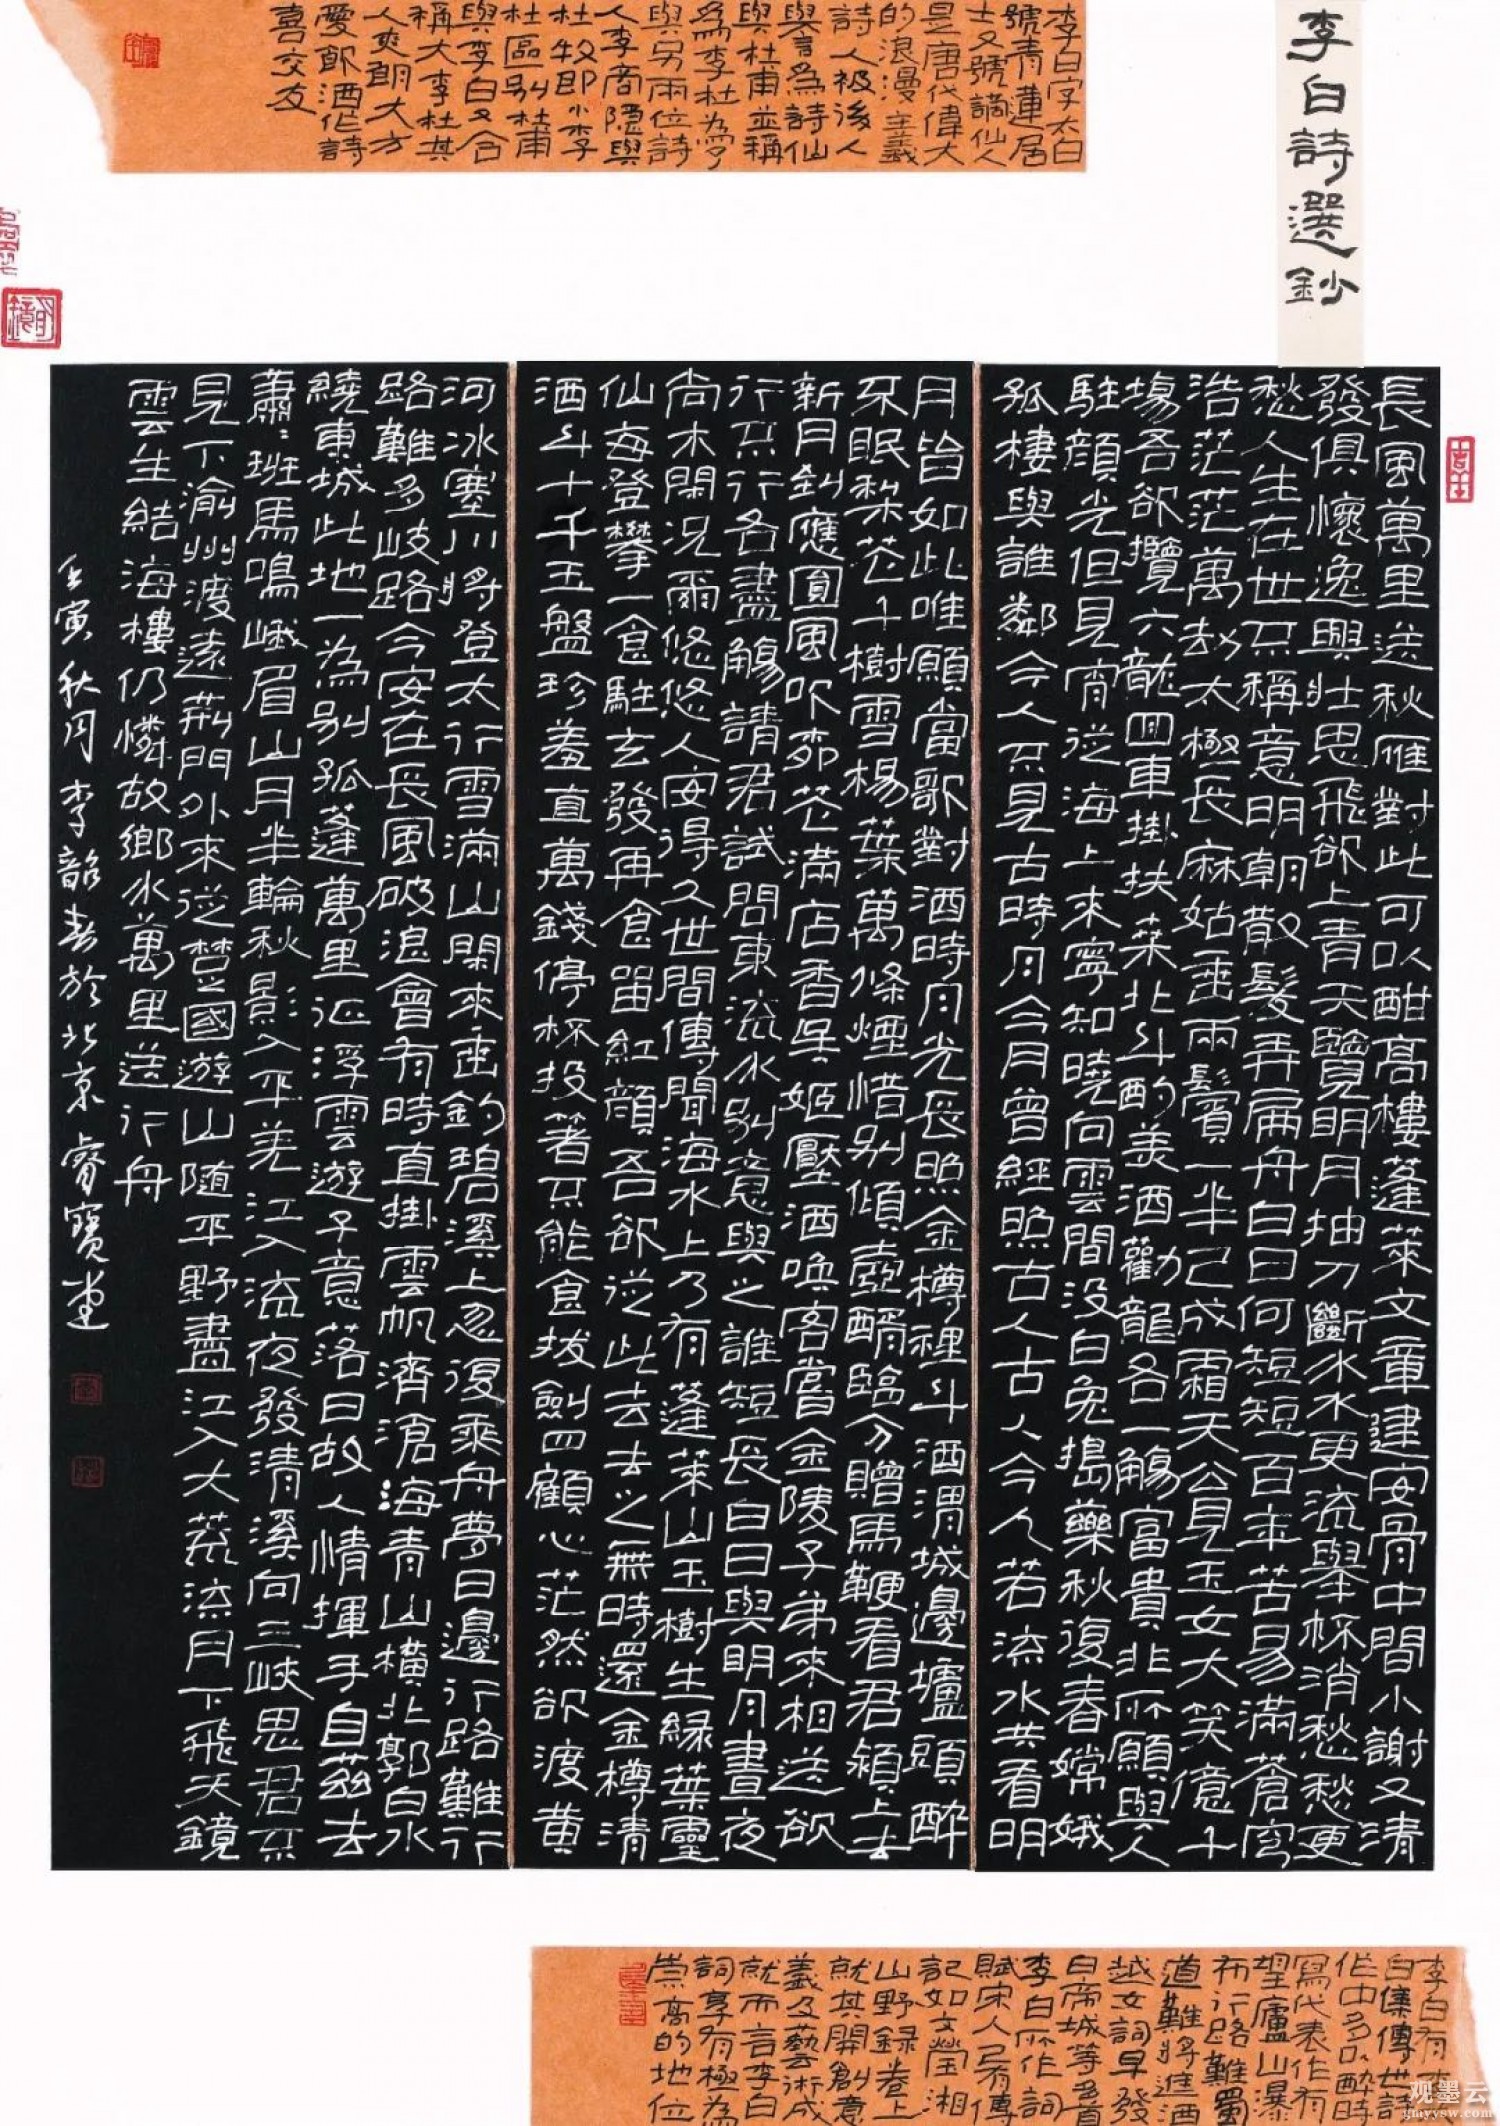 李白詩選鈔
李白字太白
號青蓮居
士又號謫仙人
是唐代偉大
的浪漫主義
詩人被後人
與言為詩仙
與杜甫並稱
為李杜為了
與另兩位詩
人李商隱與
杜牧即小李
杜區別杜甫
與李白又合
稱大李杜其
人爽朗大方
愛飲酒作詩
喜交友
長風萬里送秋雁對此可以酣高樓蓬萊文章建安骨中間小謝又清
發俱懷逸興壯思飛欲上青天覽明月抽刀斷水水更流舉杯消愁愁更
愁人生在世不稱意明朝散髮弄扁舟白日何短短百年苦易滿蒼穹
浩茫茫萬劫太極長麻姑垂兩鬢一半已成霜天公見玉女大笑億千
場吾欲攬六龍回車掛扶桑北斗酌美酒勸龍各一觴富貴非所願與人
駐顏光但見宵從海上來寧知曉向雲間沒白兔搗藥秋復春嫦娥
孤棲與誰鄰今人不見古時月今月曾經照古人古人今人若流水共看明
月皆如此唯願當歌對酒時月光長照金樽裡斗酒渭城邊壚頭醉
不眠梨花千樹雪楊葉萬條煙惜別傾壺醑臨分贈馬鞭看君潁上去
新月到應圓風吹柳花滿店香吳姬壓酒喚客嘗金陵子弟來相送欲
行不行各盡觴請君試問東流水別意與之誰短長白日與明月晝夜
尚不閑況爾悠悠人安得久世間傳聞海水上乃有蓬萊山玉樹生綠葉靈
仙每登攀一食駐玄髮再食留紅顏吾欲從此去去之無時還金樽清
酒斗十千玉盤珍羞直萬錢停杯投箸不能食拔劍四顧心茫然欲渡黃
河冰塞川將登太行雪滿山閑來垂釣碧溪上忽復乘舟夢日邊行路難行
路難多歧路今安在長風破浪會有時直掛雲帆濟滄海青山橫北郭白水
繞東城此地一為別孤蓬萬里征浮雲遊子意落日故人情揮手自茲去
蕭蕭班馬鳴峨眉山月半輪秋影入平羌江入流夜發清溪向三峽思君不
見下渝州渡遠荊門外來從楚國遊山隨平野盡江入大荒流月下飛天鏡
雲生結海樓仍憐故鄉水萬里送行舟
壬寅秋月李韶春於北京睿寶堂
李白有
白集傳世詩
作中多以醉時
寫代表作有
望廬山瀑
布行路難蜀
道難將進酒
越女詞早發
白帝城等多首
李白所作詞
賦宋人已有傳
記如文瑩湘
山野錄卷上
就其開創意
義及藝術成
就而言李白
詞享有極為
崇高的地位
观墨云
gmyysw.com